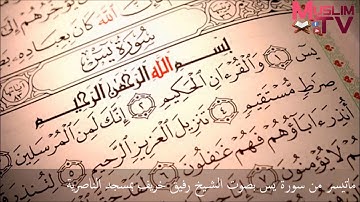 MUSLIM
TV
الله كان بعباده
سورة يس
بسم الله الرحمن الرحيم
يس ١ والقرءان الحكيم ٢ إنك لمن المرسلين ٣
صرط مستقيم ٤ تنزيل العزيز الرحيم ٥ لتنذر
أنذر ءاباؤهم فهم غفلون ٦
لا يؤمنون ٧
ماتيسر من سورة يس بصوت الشيخ رفيق خريف بمسجد الناصرية